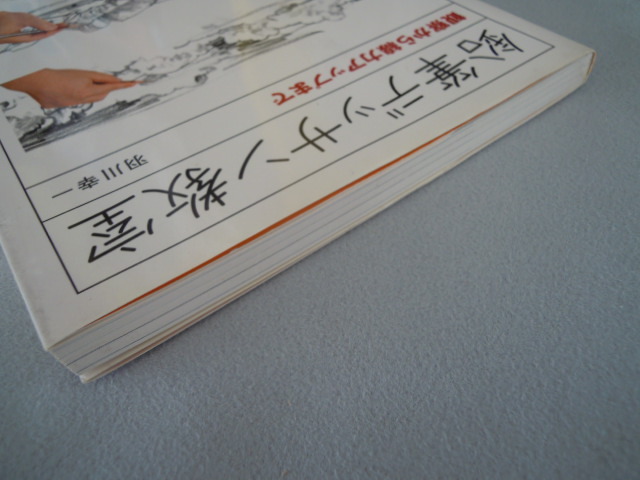 鉛筆デッサン教室
観察から絵力アップまで
羽川幸一